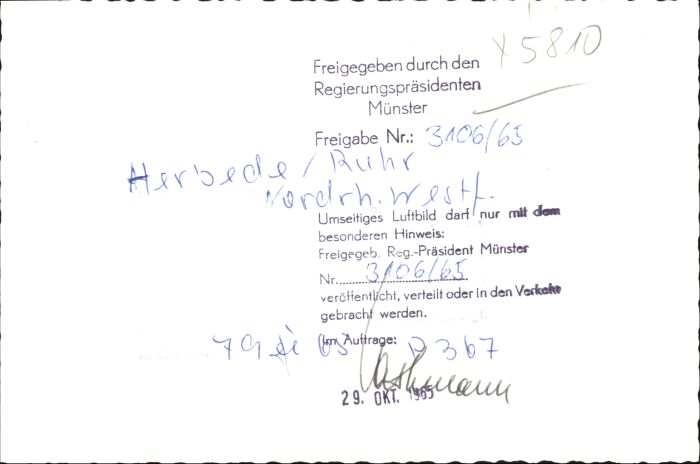 X 5810
Freigegeben durch den
Regierungspräsidenten
Münster
Freigabe Nr.: 3106/65
Herbede / Ruhr
Nordrh. Westf.
Umseitiges Luftbild darf nur mit dem
besonderen Hinweis:
Freigegeb. Reg.-Präsident Münster
Nr. 3106/65
veröffentlicht, verteilt oder in den Verkehr
gebracht werden.
Im Auftrage: P 367
29. OKT. 1965